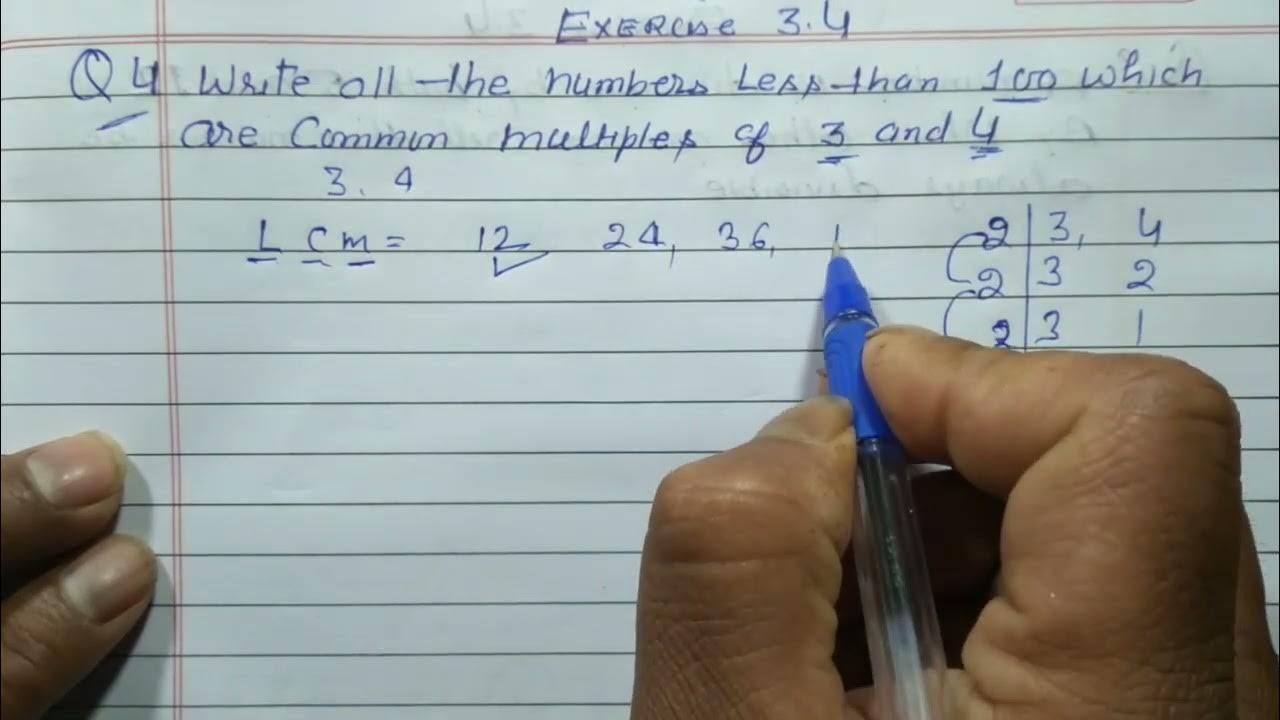 Exercise 3.4
Q 4 Write all the numbers less than 100 which
are Common multiples of 3 and 4
3. 4
L C m = 12 24, 36,
2 3, 4
2 3 2
2 3 1